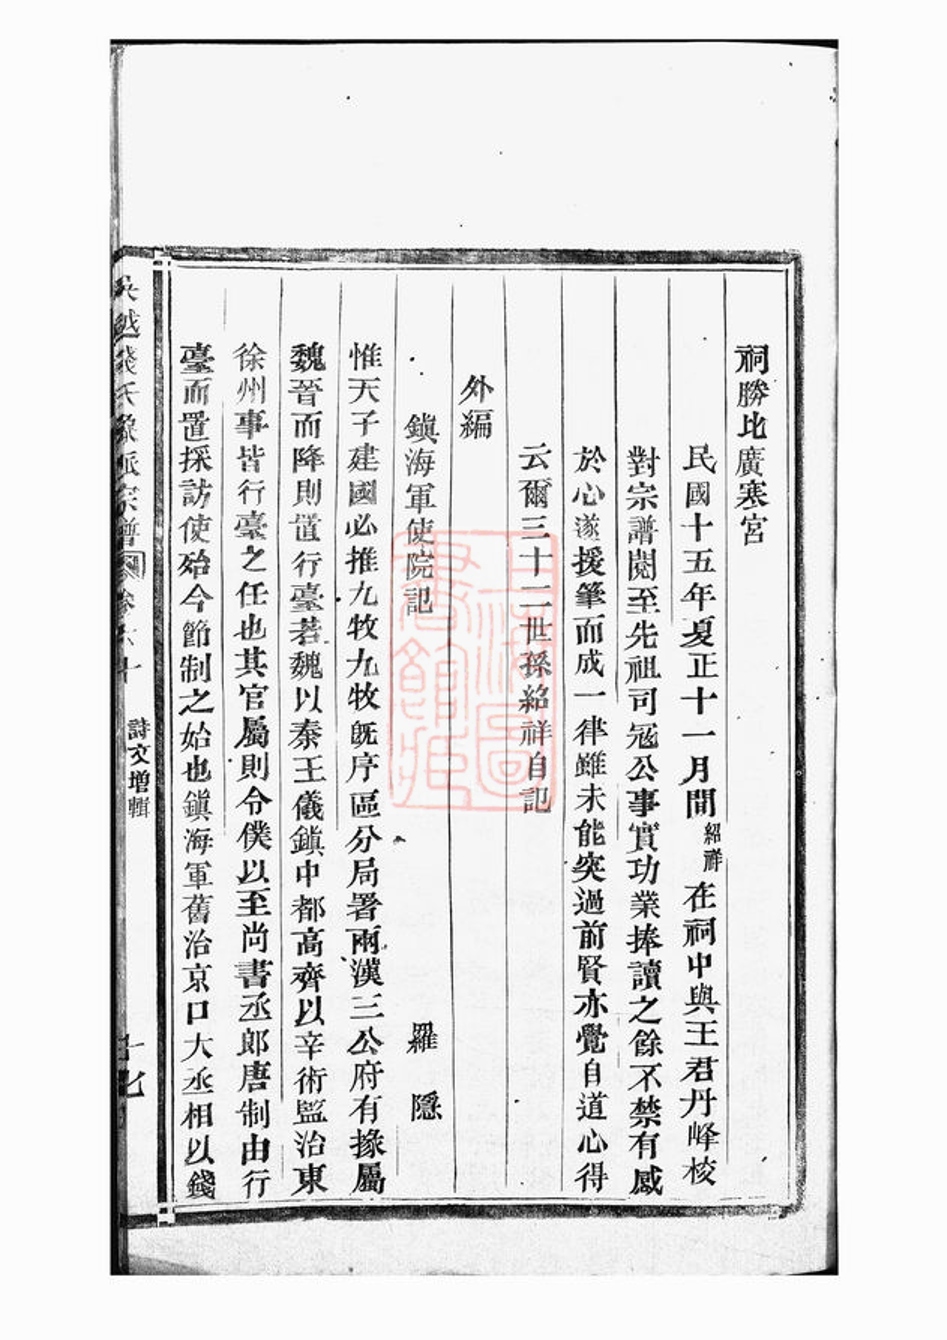 祠勝比廣寒宮
民國十五年夏正十一月間紹祥在祠中與王君丹峰校
對宗譜閱至先祖司冦公事實功業捧讀之餘不禁有感
於心遂援筆而成一律雖未能突過前賢亦覺自道心得
云爾三十二世孫紹祥自記
外編
鎭海軍使院記 羅隱
惟天子建國必推九牧九牧旣序區分局署兩漢三公府有掾屬
魏晉而降則置行臺若魏以秦王儀鎭中都高齊以辛術監治東
徐州事皆行臺之任也其官屬則令僕以至尚書丞郞唐制由行
臺而置採訪使殆今節制之始也鎭海軍舊治京口大丞相以錢
吳越錢氏 派宗譜 卷 十 詩文增輯
上海圖書館藏